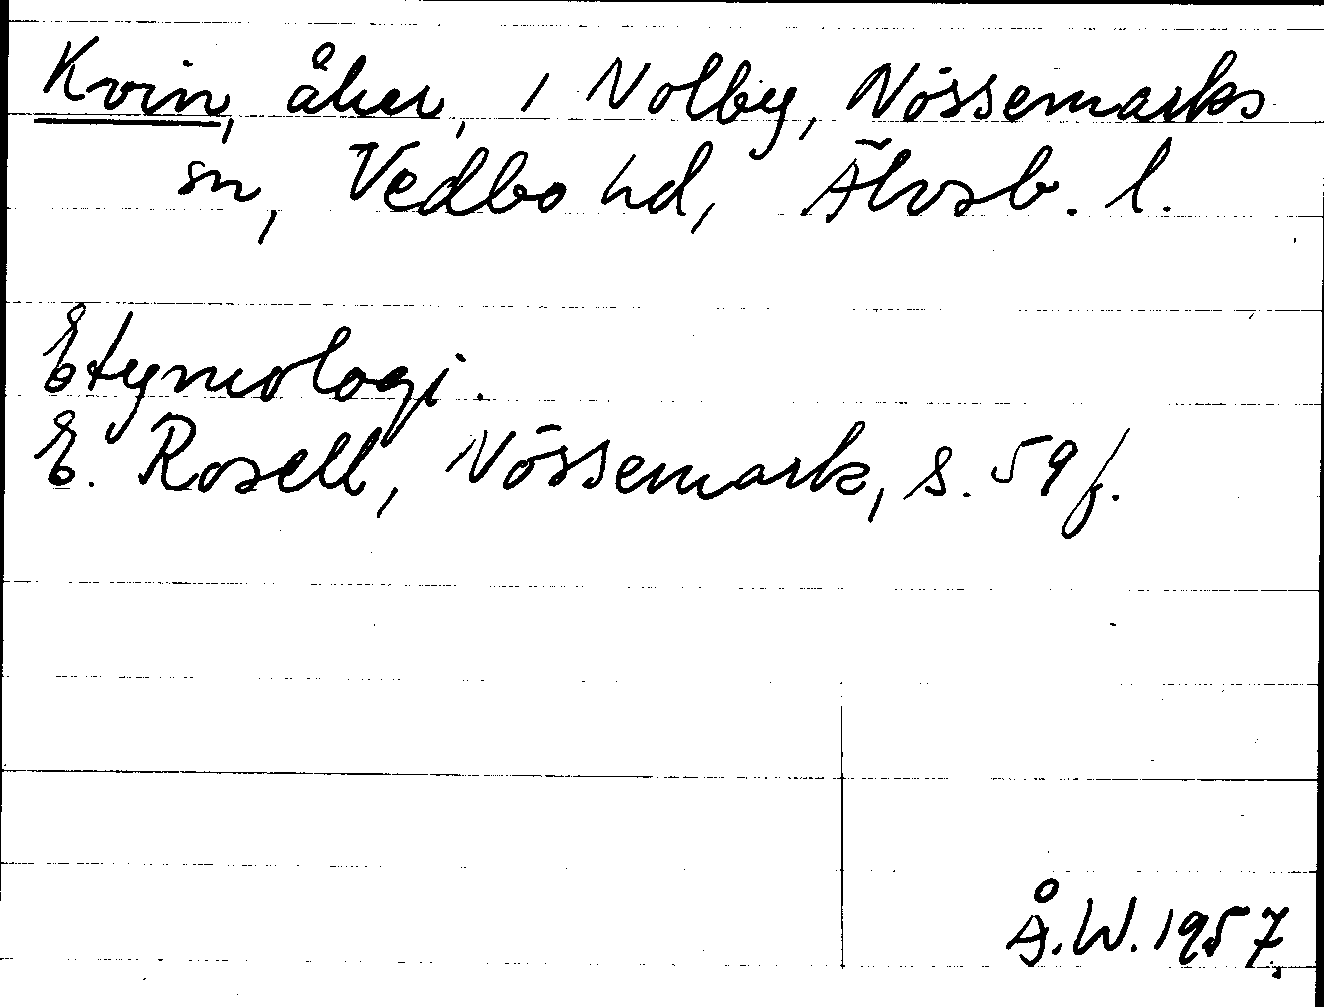 Kvin, åker, i Nolby, Nössemarks
sn, Vedbo hd, Älvsb. l.
Etymologi.
E. Rosell, Nössemark, s. 59 f.
Å.W. 1957.